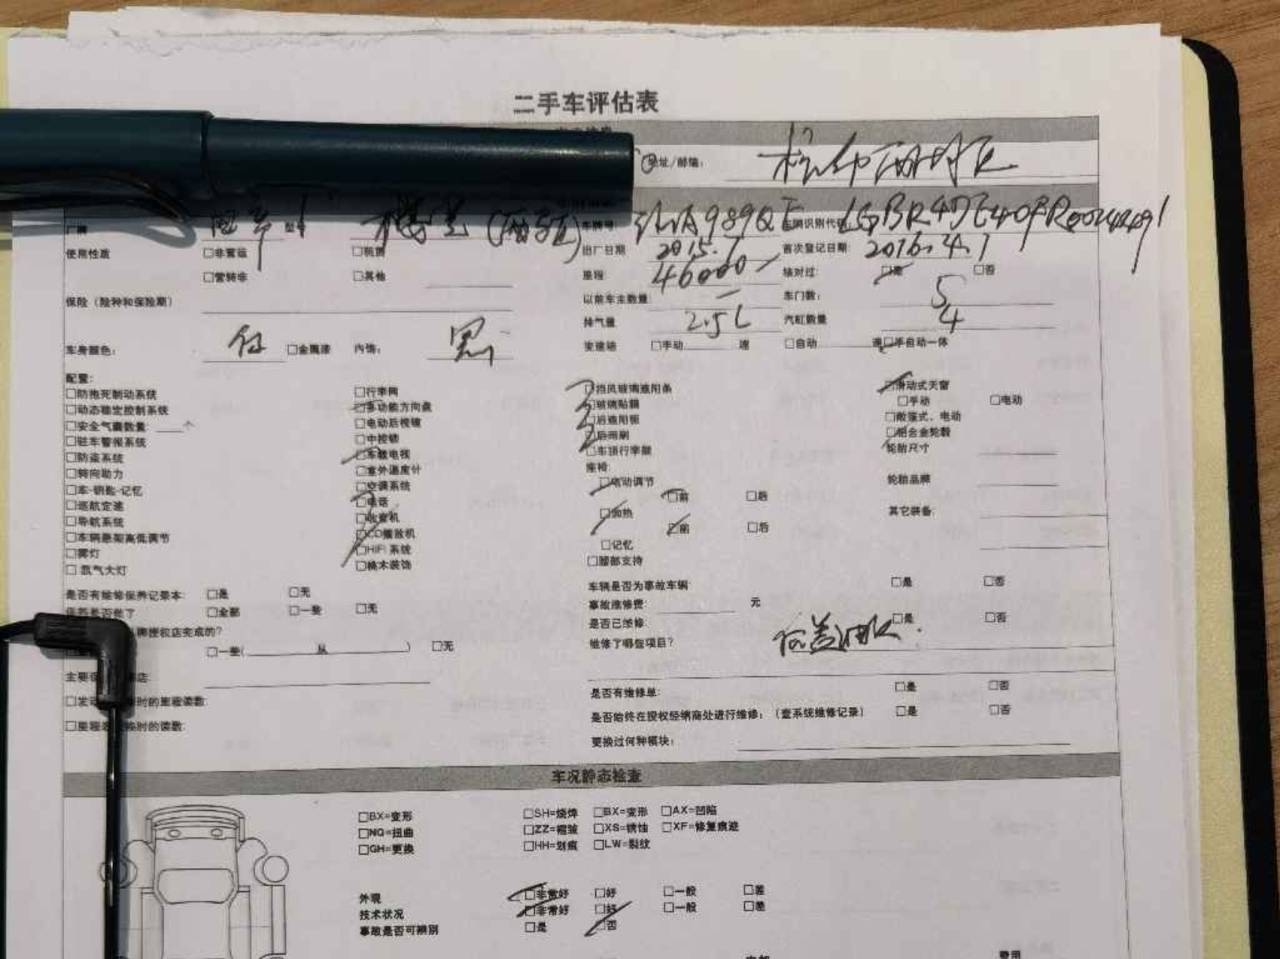 二手车评估表
地址/邮编:
厂牌 型 车牌号: 989QF 车辆识别代码
使用性质 □非营运 □租赁 出厂日期 2015. 首次登记日期: 2016.4.1
□营转非 □其他 里程: 46000 核对过: □是 □否
保险（险种和保险期） 以前车主数量: 一 车门数: 5
排气量 2.5L 汽缸数量 4
车身颜色: 红 □金属漆 内饰: 黑 变速箱 □手动 速 □自动 速□手自动一体
配置:
□防抱死制动系统 □行李网 □挡风玻璃遮阳条 □滑动式天窗
□动态稳定控制系统 □多功能方向盘 □玻璃贴膜 □手动 □电动
□安全气囊数量: 个 □电动后视镜 □后遮阳板 □敞篷式、电动
□驻车警报系统 □中控锁 □后雨刷 □铝合金轮毂
□防盗系统 □车载电视 □车顶行李架 轮胎尺寸
□转向助力 □室外温度计 座椅:
□车-钥匙-记忆 □空调系统 □电动调节 □前 □后 轮胎品牌
□巡航定速 □电话 □加热 □前 □后 其它装备:
□导航系统 □收音机 □记忆
□车辆悬架高低调节 □CD播放机 □腰部支持
□雾灯 □HiFi 系统
□氙气大灯 □桃木装饰
是否有维修保养记录本: □是 □无 车辆是否为事故车辆: □是 □否
□全部 □一些 □无 事故维修费: 元
牌授权店完成的? 是否已维修: □是 □否
□一些( 从 ) □无 维修了哪些项目?
主要 店:
□发动 时的里程读数: 是否有维修单: □是 □否
□里程 换时的读数: 是否始终在授权经销商处进行维修:（查系统维修记录） □是 □否
更换过何种模块:
车况静态检查
□BX=变形 □SH=烧焊 □BX=变形 □AX=凹陷
□NQ=扭曲 □ZZ=褶皱 □XS=锈蚀 □XF=修复痕迹
□GH=更换 □HH=划痕 □LW=裂纹
外观 □非常好 □好 □一般 □差
技术状况 □非常好 □好 □一般 □差
事故是否可辨别 □是 □否
费用